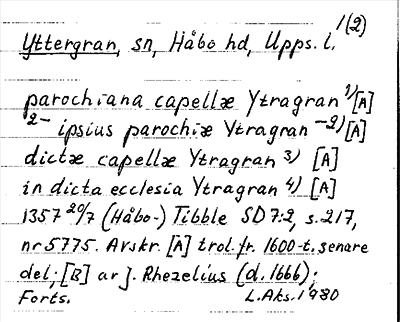 Yttergran, sn, Håbo hd, Upps. l. 1(2)
parochiana capellæ Ytragran 1) [A]
2- ipsius parochiæ Ytragran -2) [A]
dictæ capellæ Ytragran 3) [A]
in dicta ecclesia Ytragran 4) [A]
1357 20/7 (Håbo-) Tibble SD 7:2, s. 217,
nr 5775. Avskr. [A] trol. fr. 1600-t. senare
del; [B] av J. Rhezelius (d. 1666);
Forts. L. Aks. 1980